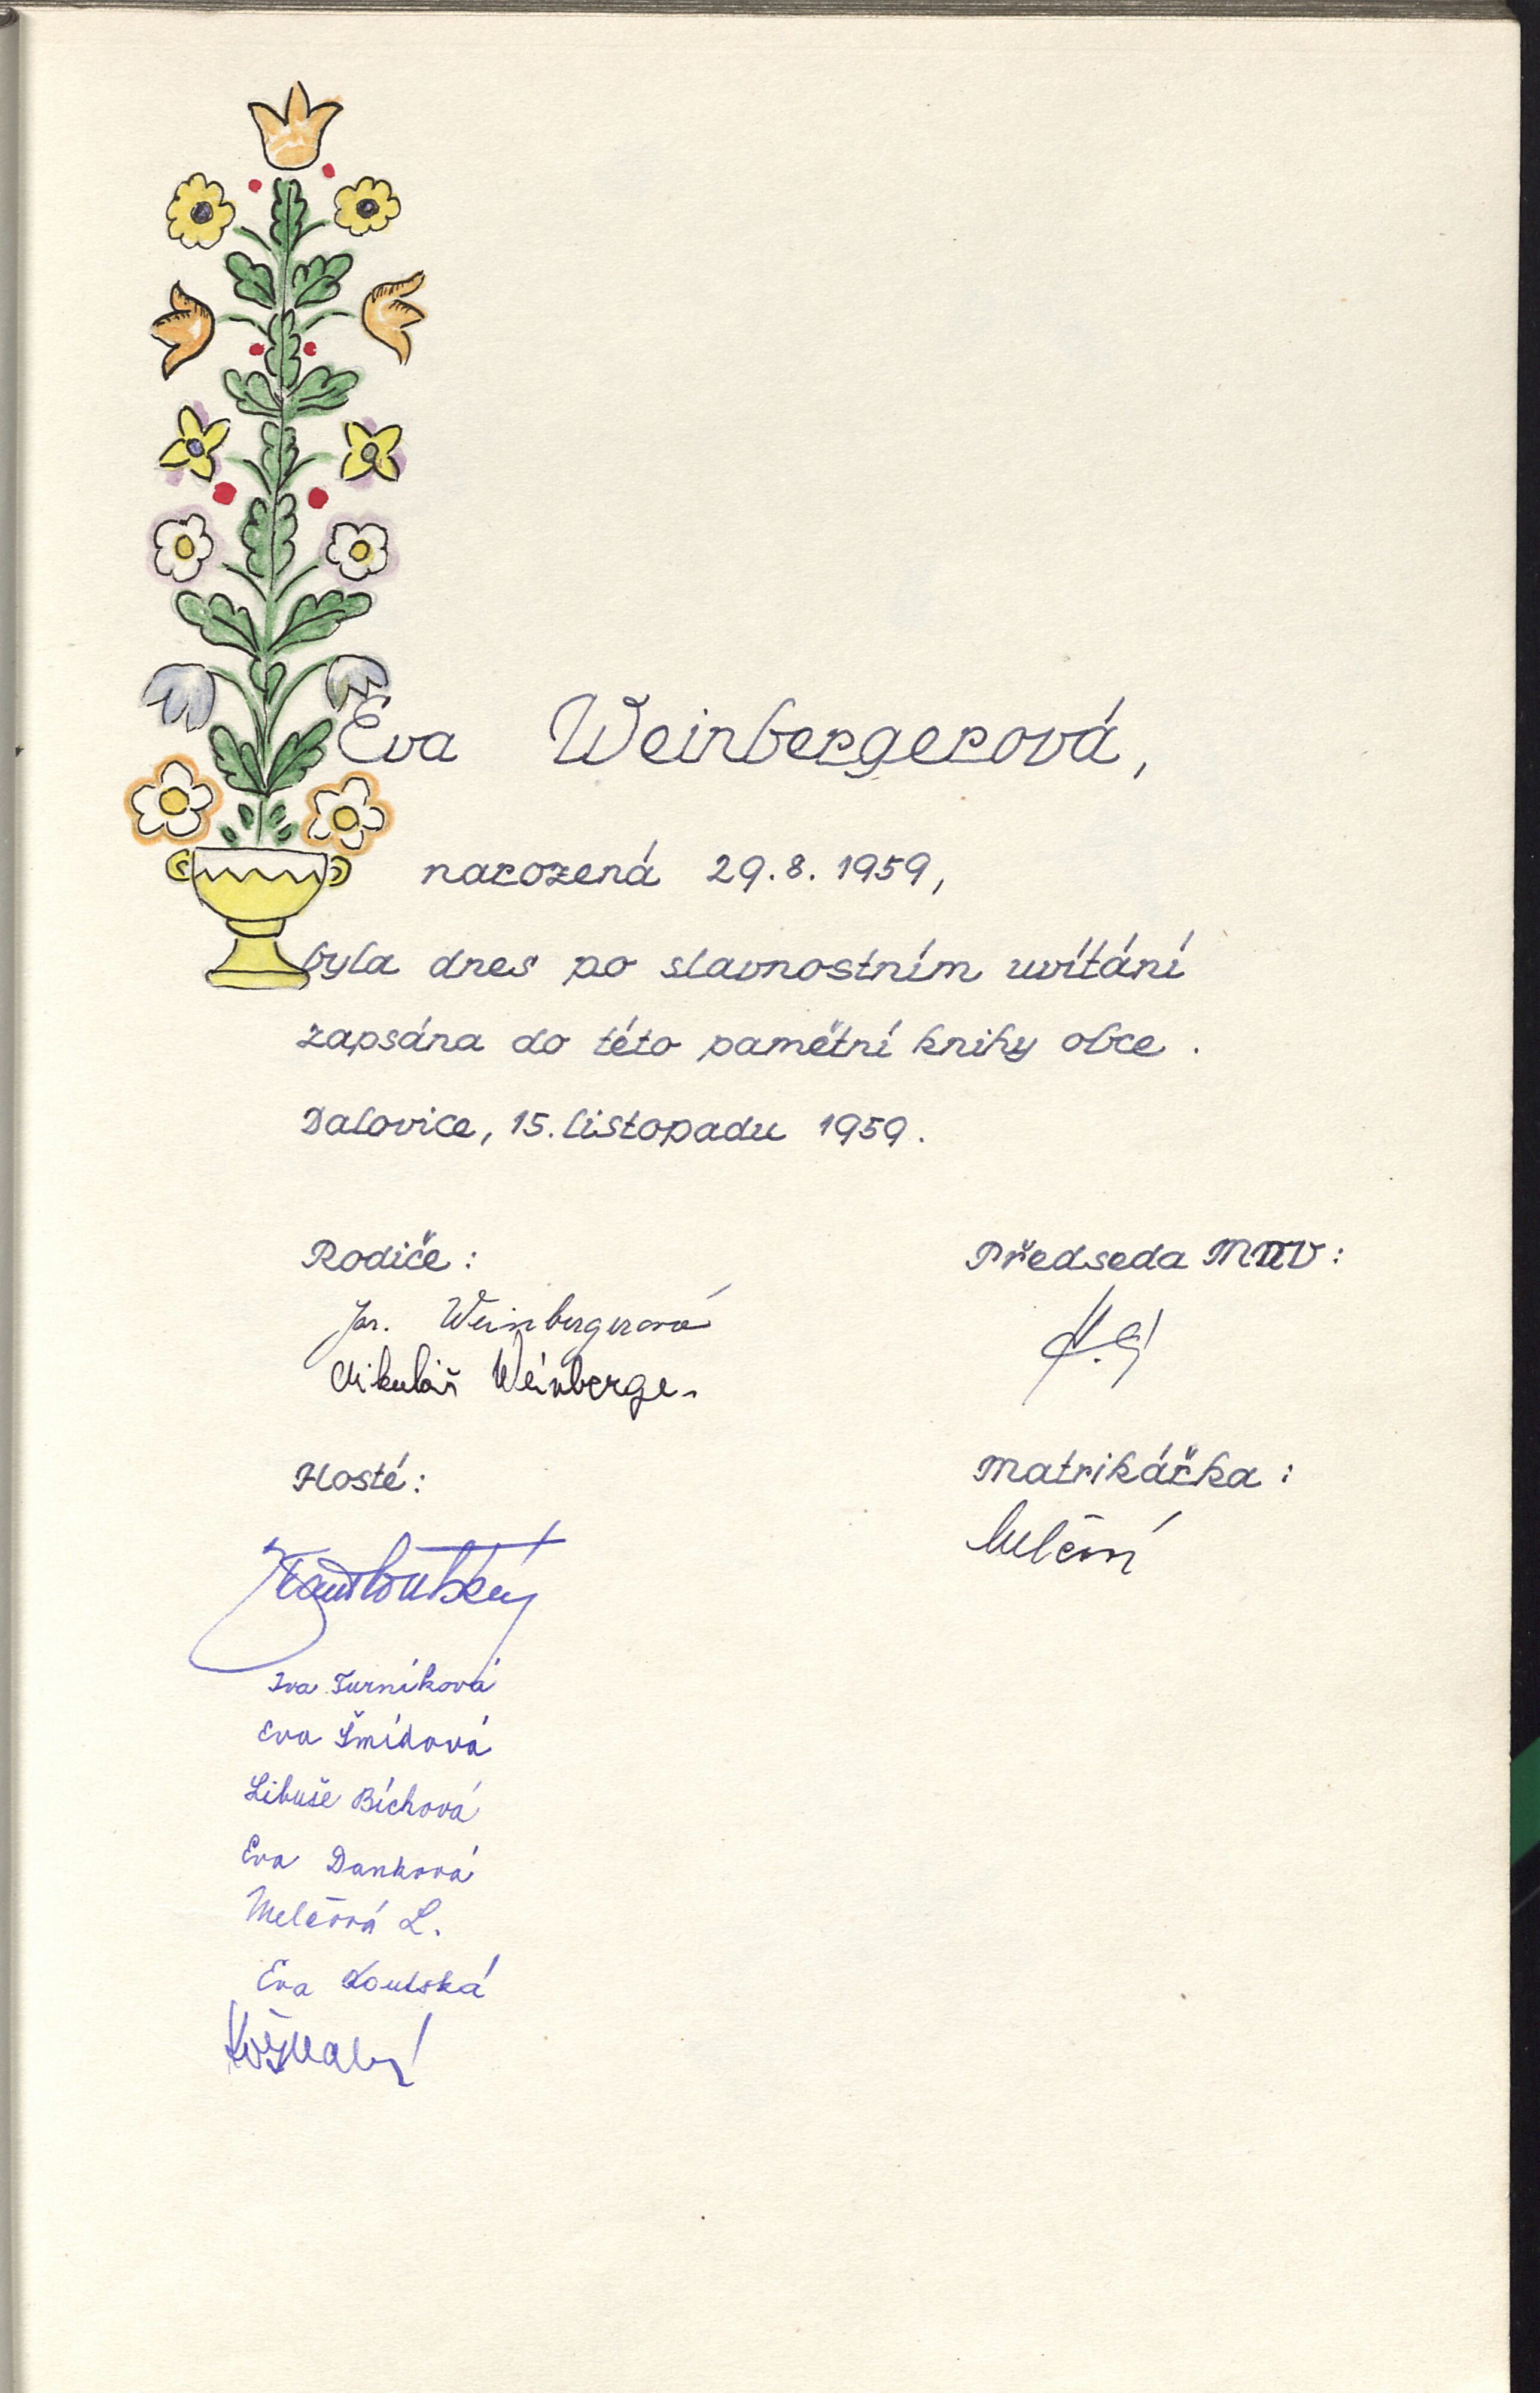 Eva Weinbergerová,
narozená 29.8.1959,
byla dnes po slavnostním uvítání
zapsána do této pamětní knihy obce.
Dalovice, 15. listopadu 1959.
Rodiče:
Jar. Weinbergerová
Mikuláš Weinberger
Předseda MNV:
Hosté:
Matrikářka:
Iva Turníková
Eva Šmídová
Libuše Bíchová
Eva Danková
Melčová L.
Eva Loutská